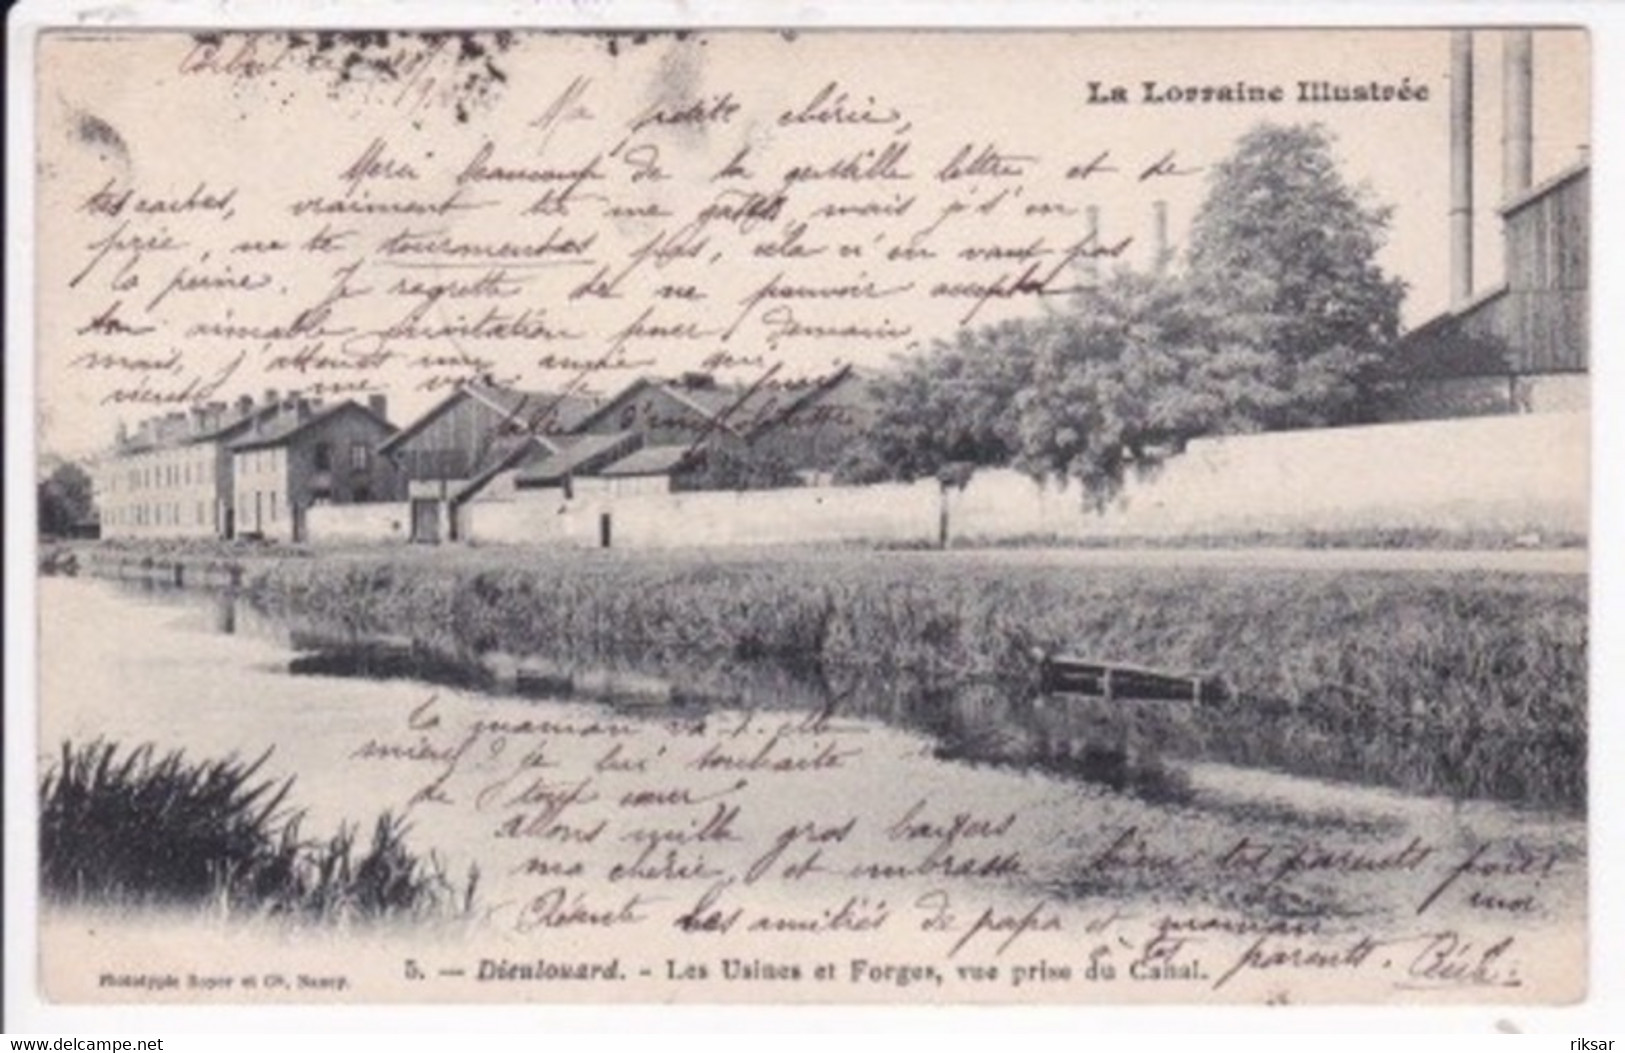 La Lorraine Illustrée
Ma petite chérie,
Merci beaucoup de ta gentille lettre et de
tes cartes, vraiment tu me gâtes, mais je t'en
prie, ne te tourmentes pas, cela n'en vaut pas
la peine. Je regrette de ne pouvoir accepter
ton aimable invitation pour demain,
mais, j'attends une amie qui
vient me voir je
ta maman va-t-elle
mieux? je lui souhaite
de tout cœur
Allons mille gros baisers
ma chérie, et embrasse bien tes parents pour
moi.
Reçois les amitiés de papa et maman
à tes parents.
5. — Dieulouard. - Les Usines et Forges, vue prise du Canal.
Phototypie Royer et Cie, Nancy.
delcampe.net
riksar